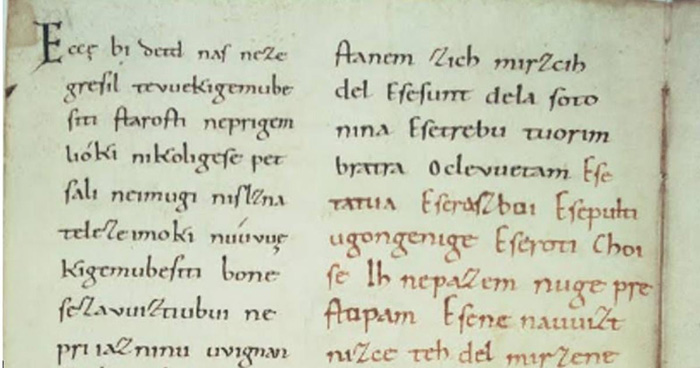 Eccę bi detd naſ neze
greſil tevuekigemube
ſiti ſtaroſti neprigem
lióki nikoligeſe pet
ſali neimugi niſlzna
teleze imoki núuvuę
kigemubeſiti bone
ſezavuiztiubui ne
priiazninu uvignan
ſtanem zich mirzcih
del Eſeſunt dela ſoto
nina Eſetrebu tuorim
bratra Oclevuetam Eſe
tatua Eſeraſzboi Eſepulti
ugongenige Eſeroti Choi
ſe Ih nepazem nuge pre
ſtupam Eſene nauuizt
nizce teh del mirzene